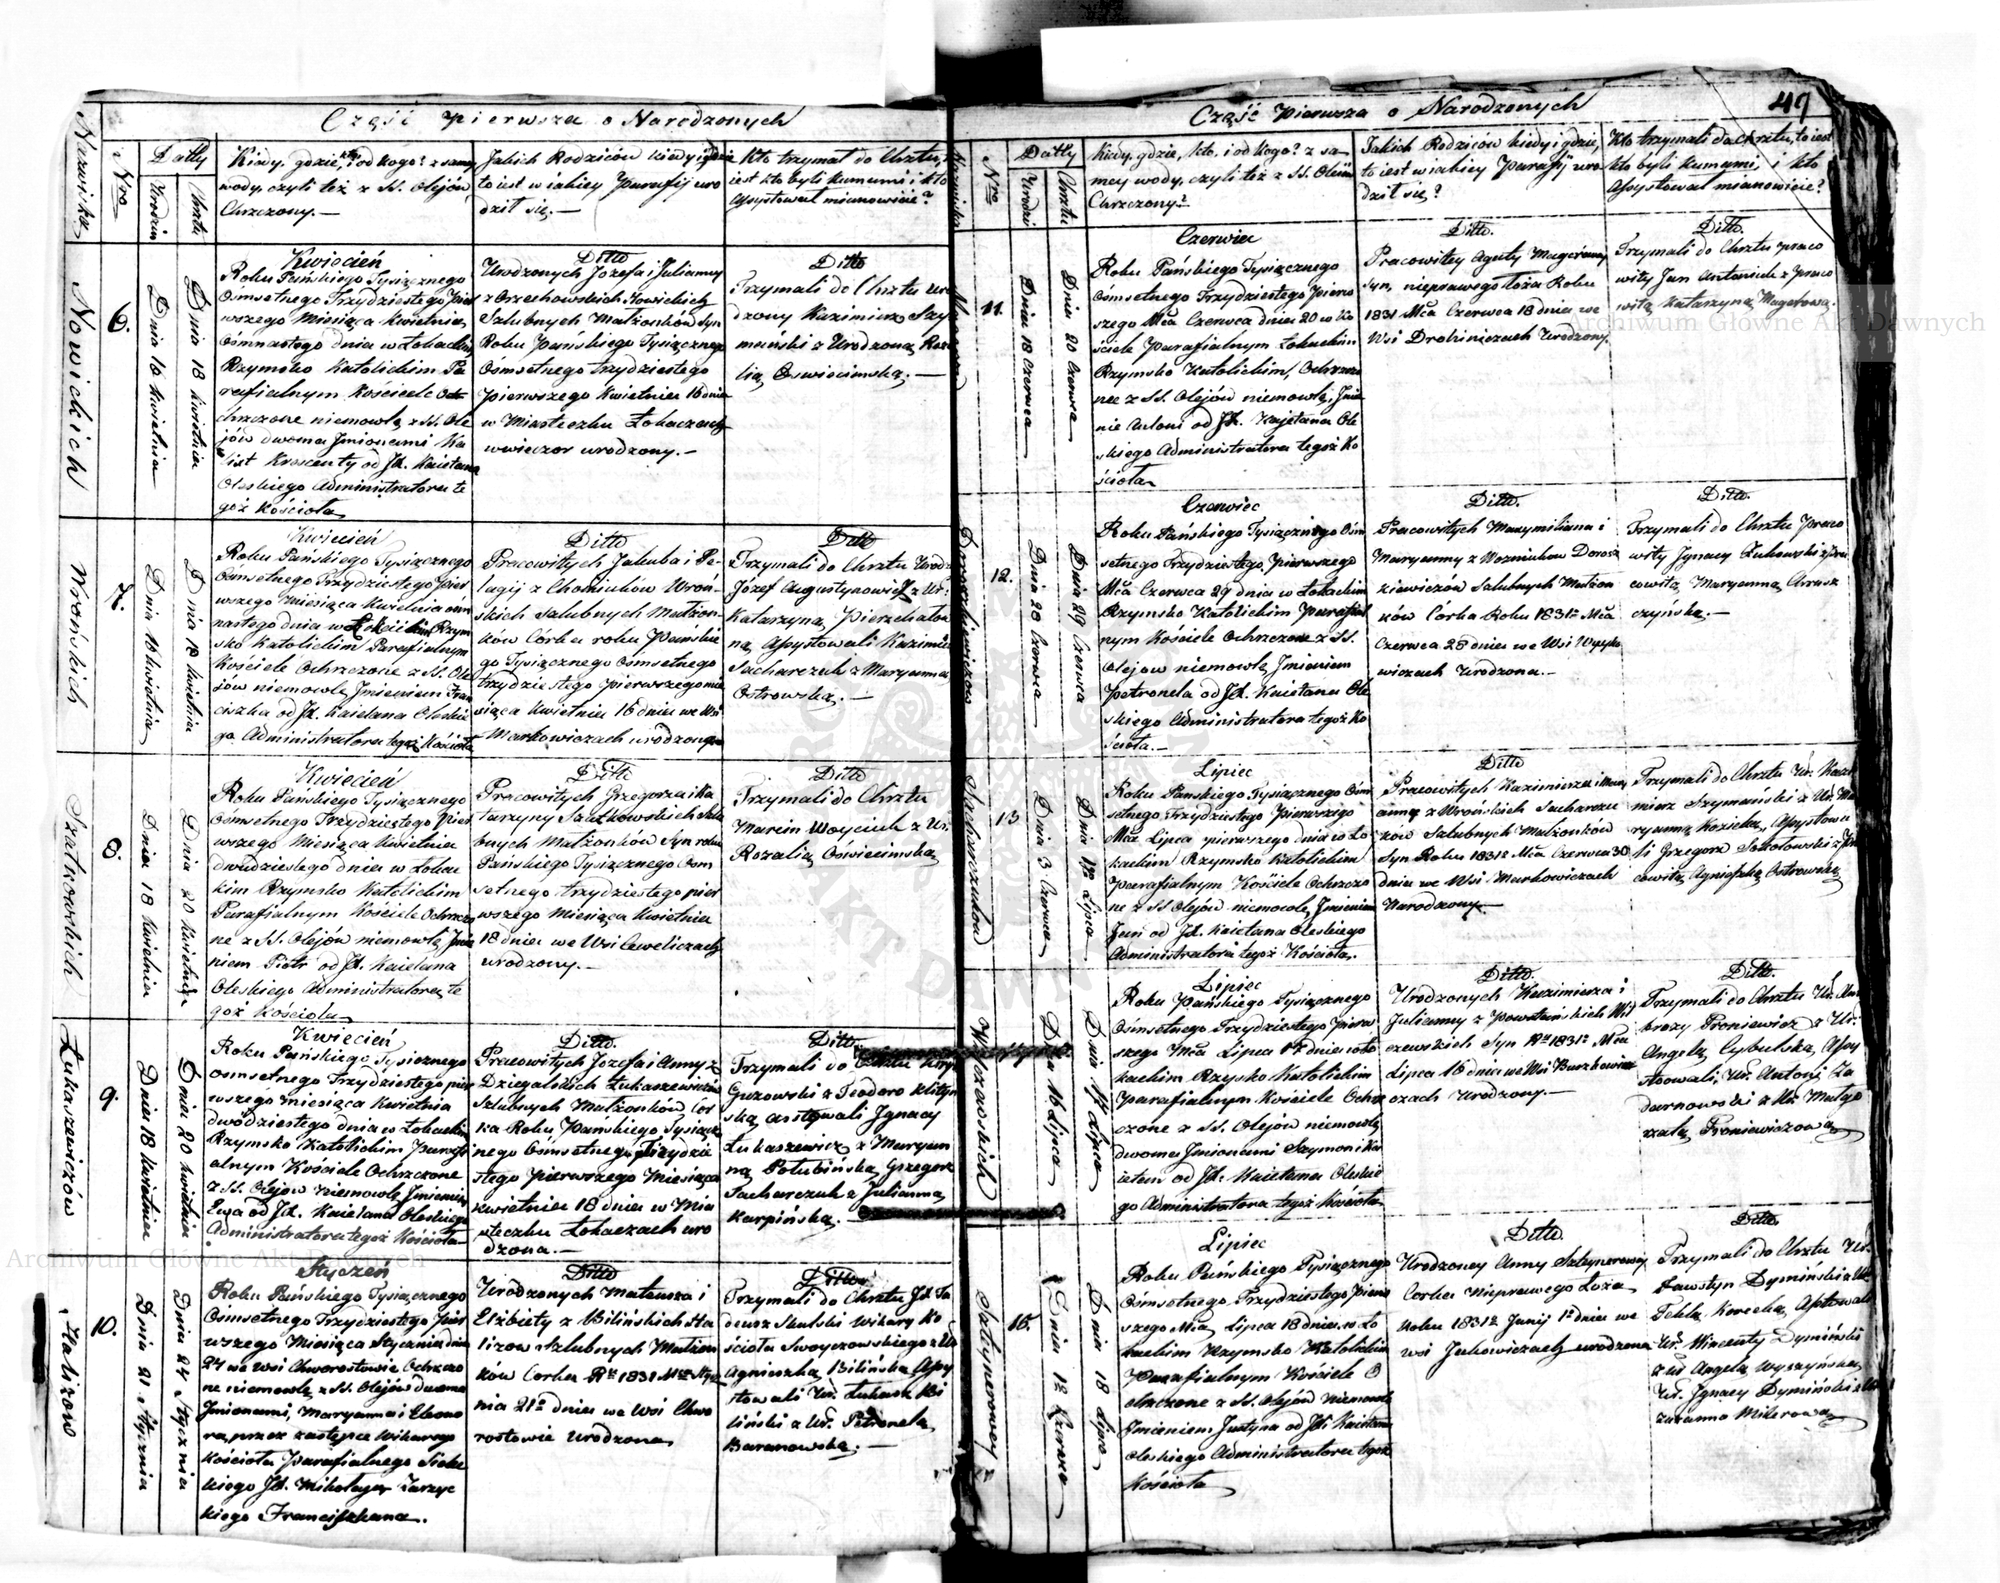 Część pierwsza o Narodzonych
Nazwiska
Nro
Datty
Urodzin
Chrztu
Kiedy, gdzie, kto, i od kogo? z samey
wody, czyli też z SS. Olejów
Chrzczony.—
Jakich Rodziców kiedy i gdzie
to iest w iakiey Parafij uro
dził się.—
Kto trzymał do Chrztu, to
iest kto byli kumami i kto
Assystował mianowicie?
Nowickich
6.
Dnia 16 kwietnia
Dnia 18 kwietnia
Kwiecień
Roku Pańskiego Tysiącznego
Osmsetnego Trzydziestego Pier
wszego Miesiąca Kwietnia
Osmnastego dnia w Łokackim
Rzymsko Katolickim Pa
rafialnym Kościele Och
chrzczone niemowle z SS. Ole
jów dwoma Jmionami Ka
list Krescenty od Jx. Kaietana
Oleskiego Administratora te
goż Kościoła
Ditto
Urodzonych Józefa i Julianny
z Orzechowskich Nowickich
Szlubnych Małżonków Syn
Roku Pańskiego Tysiącznego
Osmsetnego trzydziestego
pierwszego Kwietnia 16 dnia
w Miasteczku Łokaczach
wwieczor urodzony.—
Ditto
Trzymali do Chrztu uro
dzony Kazimierz Szy
mański z Urodzoną Roza
lią Oswiecimską.—
Wrońskich
7.
Dnia 16 kwietnia
Dnia 18 kwietnia
Kwiecień
Roku Pańskiego Tysiącznego
Osmsetnego Trzydziestego Pier
wszego miesiąca Kwietnia osm
nastego dnia w Łokackim Rzym
sko Katolickim Parafialnym
Kościele Ochrzczone z SS. Ole
jów niemowle Jmieniem Fran
ciszka od Jx. Kaietana Oleskie
go Administratora tegoż Kościoła
Ditto
Pracowitych Jakuba i Pe-
lagij z Chomiuków Wroń-
skich Szlubnych Małżon-
ków Corka roku Pańskie
go Tysiącznego Osmsetnego
trzydziestego pierwszego mie
siąca Kwietnia 16 dnia we Wsi
Markowiczach urodzona
Ditto
Trzymali do Chrztu Urodz.
Józef Augustynowicz z Ur.
Katarzyną Pierzchałow
ną Assystowali Kazimierz
Sacharczuk z Maryanną
Ostrowską.—
Szatkowskich
8.
Dnia 18 Kwietnia
Dnia 20 Kwietnia
Kwiecień
Roku Pańskiego Tysiącznego
Osmsetnego Trzydziestego Pier
wszego Miesiąca Kwietnia
dwudziestego dnia w Łokac
kim Rzymsko Katolickim
Parafialnym Kościele Ochrzczo
ne z SS. Olejów niemowle Jmie
niem Piotr od Jx. Kaietana
Oleskiego Administratora te
goż Kościoła
Ditto
Pracowitych Grzegorza i Ka
tarzyny Szatkowskich Szlu
bnych Małżonków Syn roku
Pańskiego Tysiącznego Osm
setnego trzydziestego pier
wszego Miesiąca Kwietnia
18 dnia we Wsi Ceweliczach
urodzony.—
Ditto
Trzymali do Chrztu
Marcin Woyciuk z Ur.
Rozalią Oświecimską
Łukaszewiczów
9.
Dnia 18 kwietnia
Dnia 20 kwietnia
Kwiecień
Roku Pańskiego Tysiącznego
osmsetnego Trzydziestego pier
wszego miesiąca Kwietnia
dwudziestego dnia w Łokackim
Rzymsko Katolickim Parafi
alnym Kościele Ochrzczone
z SS. Olejów niemowle Jmieniem
Ewa od Jx. Kaietana Oleskiego
Administratora tegoż Kościoła
Ditto.
Pracowitych Józefa i Anny z
Łukaszewiczów
Szlubnych Małżonków Cor
ka Roku Pańskiego Tysiącz
nego Osmsetnego trzydzie
stego pierwszego Miesiąca
kwietnia 18 dnia w Mia
steczku Łokaczach uro
dzona.—
Ditto.
Trzymali do Chrztu
Guzowski z Teodorą
ską Asstowali Jgnacy
Łukaszewicz z Maryan
ną Połubińską Grzegorz
Sacharczuk z Julianną
Karpińską.
Halizow
10.
Dnia 21 stycznia
Dnia 24 stycznia
Styczeń
Roku Pańskiego Tysiącznego
Osmsetnego Trzydziestego Pier
wszego Miesiąca Stycznia dnia
24 we Wsi Chworostowie Ochrzczo
ne niemowle z SS. Olejów dwoma
Jmionami, Maryanna i Eleono
ra, przez zastępce Wikarego
Kościoła Parafialnego
kiego Jx. Mikołaja Zarzyc
kiego Franciszkana.
Ditto
Urodzonych Mateusza i
Elżbiety z Bilińskich Ha
lizow Szlubnych Małżon
ków Corka Rku 1831 Mca Stycz
nia 21º dnia we Wsi Chwo
rostowie urodzona
Ditto
Trzymali do Chrztu Jx. Ta
deusz Skulski Wikary Ko
ścioła Swoyczowskiego z Ur.
Agnieszką Bilińską Assy
stowali Ur. Łukasz Bi
liński z Ur. Petronelą
Baranowską.—
Część Pierwsza o Narodzonych
49
Nazwiska
Nro
Datty
Urodzi
Chrztu
Kiedy, gdzie, kto, i od kogo? z sa-
mey wody, czyli też z SS. Olejów
Chrzczony?
Jakich Rodziców kiedy i gdzie,
to iest w iakiey Parafij uro
dził się?
Kto trzymali do Chrztu, to iest
kto byli kumami, i kto
Assystował mianowicie?
11.
Dnia 18 Czerwca
Dnia 20 Czerwca
Czerwiec
Roku Pańskiego Tysiącznego
Osmsetnego Trzydziestego Pierw
szego Mca Czerwca dnia 20 w Ko
ściele Parafialnym Łokackim
Rzymsko Katolickim, Ochrzczo
ne z SS. Olejów niemowle, Jmie
nie Antoni od Jx. Kajetana Ole
skiego Administratora tegoż Ko
ścioła
Ditto.
Pracowitey Agaty
Syn, nieprawego łoża Roku
1831 Mca Czerwca 18 dnia we
Wsi Drohiniczach Urodzony.
Ditto.
Trzymali do Chrztu praco
wity Jan Antoniuk z praco
witą Katarzyną
Doroszkiewiczow
12.
Dnia 28 Czerwca
Dnia 29 Czerwca
Czerwiec
Roku Pańskiego Tysiącznego Osm
setnego Trzydziestego Pierwszego
Mca Czerwca 29 dnia w Łokackim
Rzymsko Katolickim Parafial
nym Kościele Ochrzczone z SS.
Olejow niemowle Jmieniem
Petronela od Jx. Kaietana Ole
skiego Administratora tegoż Ko
ścioła.—
Ditto.
Pracowitych Maxymiliana i
Maryanny z Wozniuków Dorosz
kiewiczów Szlubnych Małżon
ków Córka Roku 1831º Mca
Czerwca 28 dnia we Wsi
wiczach Urodzona.—
Ditto.
Trzymali do Chrztu praco
wity Jgnacy Żukowski z pra
cowitą Maryanną
czyńską.—
Sacharczuków
13
Dnia 3 Czerwca
Dnia 1go Lipca
Lipiec
Roku Pańskiego Tysiącznego Osm
setnego Trzydziestego Pierwszego
Mca Lipca pierwszego dnia w Ło
kackim Rzymsko Katolickim
parafialnym Kościele Ochrzczo
ne z SS Olejów niemowle, Jmieniem
Jan od Jx. Kaietana Oleskiego
Administratora tegoż Kościoła.
Ditto
Pracowitych Kazimierza i Mary
anny z Wrońskich Sacharczu
ków Szlubnych Małżonków
Syn Roku 1831º Mca Czerwca 30
dnia we Wsi Markowiczach
Narodzony.—
Trzymali do Chrztu Ur. Kazi
mierz Szymański z Ur. Ma
ryanną Kozicką, Assystowa
li Grzegorz Sokołowski z Pra
cowitą Agnieszką Ostrowską
Wilczewskich
Dnia 16 Lipca
Dnia 17 Lipca
Lipiec
Roku Pańskiego Tysiącznego
Osmsetnego Trzydziestego pierw
szego Mca Lipca 17 dnia w Ło
kackim Rzysko Katolickim
Parafialnym Kościele Ochrz
czone z SS. Olejów niemowle
dwoma Jmionami Szymon i Ka
ietan od Jx. Kaietana Oleskie
go Administratora tegoż Kościoła
Ditto.
Urodzonych Kazimierza i
Julianny z Powstańskich Wil
czewskich Syn Rº 1831º Mca
Lipca 16 dnia we Wsi
czach Urodzony.—
Ditto.
Trzymali do Chrztu Ur. Am
brozy Froniewicz z Ur.
Angelą Cybulską, Assy
stowali, Ur. Antoni Za
darnowski z Ur. Małgo
rzatą Froniewiczową
Szteynerowey
15.
Dnia 1º Czerwca
Dnia 18 Lipca
Lipiec
Roku Pańskiego Tysiącznego
Osmsetnego Trzydziestego Pierw
szego Mca Lipca 18 dnia w Ło
kackim Rzymsko Katolickim
Parafialnym Kościele O
chrzczone z SS. Olejów niemowle
Jmieniem Justyna od Jx. Kaietana
Oleskiego Administratora tegoż
Kościoła
Ditto.
Urodzoney Anny Szteynerowey
Corka Nieprawego Łoża
Roku 1831º Junij 1º dnia we
wsi Jachowiczach urodzona
Ditto.
Trzymali do Chrztu Ur.
Fawstyn Dymiński z Ur.
Teklą Korecką, Asstowali
Ur. Wincenty Dymiński
z Ur Angelą Wyszyńską
Ur. Jgnacy Dymiński z Ur.
Zuzanną Milerową
Archiwum Główne Akt Dawnych
Archiwum Główne Akt Dawnych